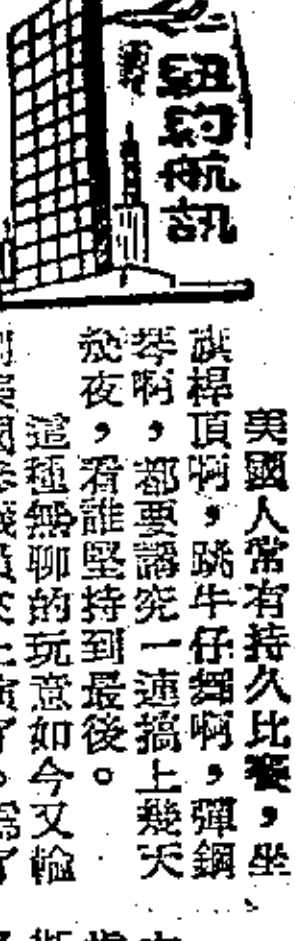 紐約航訊
美國人常有持久比賽，坐
旗桿頂啊，跳牛仔舞啊，彈鋼
琴啊，都要講究一連搞上幾天
幾夜，看誰堅持到最後。
這種無聊的玩意如今又輪